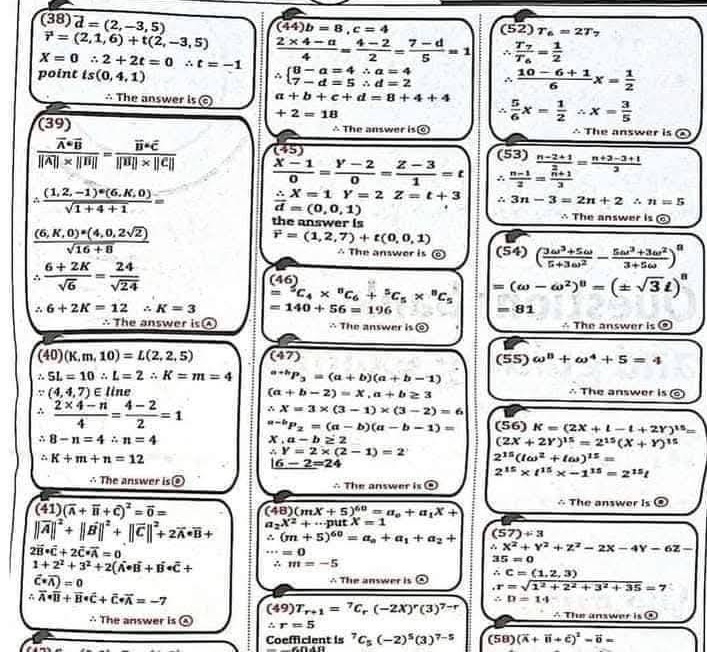 (38) d⃗ = (2, −3, 5)
r⃗ = (2, 1, 6) + t(2, −3, 5)
X = 0 ∴ 2 + 2t = 0 ∴ t = −1
point is (0, 4, 1)
∴ The answer is ⓒ
(39)
A⃗•B⃗ / ‖A⃗‖ × ‖B⃗‖ = B⃗•C⃗ / ‖B⃗‖ × ‖C⃗‖
∴ (1, 2, −1)•(6, K, 0) / √1 + 4 + 1 =
(6, K, 0)•(4, 0, 2√2) / √16 + 8
∴ 6 + 2K / √6 = 24 / √24
∴ 6 + 2K = 12 ∴ K = 3
∴ The answer is ⓐ
(40) (K, m, 10) = L(2, 2, 5)
∴ 5L = 10 ∴ L = 2 ∴ K = m = 4
∵ (4, 4, 7) ∈ line
∴ 2 × 4 − n / 4 = 4 − 2 / 2 = 1
∴ 8 − n = 4 ∴ n = 4
∴ K + m + n = 12
∴ The answer is
(41) (A⃗ + B⃗ + C⃗)² = 0⃗ =
‖A⃗‖² + ‖B⃗‖² + ‖C⃗‖² + 2A⃗•B⃗ +
2B⃗•C⃗ + 2C⃗•A⃗ = 0
1 + 2² + 3² + 2(A⃗•B⃗ + B⃗•C⃗ +
C⃗•A⃗) = 0
∴ A⃗•B⃗ + B⃗•C⃗ + C⃗•A⃗ = −7
∴ The answer is ⓐ
(44) b = 8, c = 4
2 × 4 − a / 4 = 4 − 2 / 2 = 7 − d / 5 = 1
∴ { 8 − a = 4 ∴ a = 4
7 − d = 5 ∴ d = 2
a + b + c + d = 8 + 4 + 4
+ 2 = 18
∴ The answer is
(45)
X − 1 / 0 = Y − 2 / 0 = Z − 3 / 1 = t
∴ X = 1 Y = 2 Z = t + 3
d⃗ = (0, 0, 1)
the answer is
r⃗ = (1, 2, 7) + t(0, 0, 1)
∴ The answer is
(46)
= ⁵C₄ × ⁸C₆ + ⁵C₅ × ⁸C₅
= 140 + 56 = 196
∴ The answer is
(47)
ᵃ⁺ᵇP₃ = (a + b)(a + b − 1)
(a + b − 2) = X, a + b ≥ 3
∴ X = 3 × (3 − 1) × (3 − 2) = 6
ᵃ⁻ᵇP₂ = (a − b)(a − b − 1) =
X, a − b ≥ 2
∴ Y = 2 × (2 − 1) = 2
|6 − 2 = 24
∴ The answer is
(48) (mX + 5)⁶⁰ = a₀ + a₁X +
a₂X² + ⋯ put X = 1
∴ (m + 5)⁶⁰ = a₀ + a₁ + a₂ +
⋯ = 0
∴ m = −5
∴ The answer is ⓐ
(49) Tᵣ₊₁ = ⁷Cᵣ (−2X)ʳ(3)⁷⁻ʳ
∴ r = 5
Coefficient is ⁷C₅ (−2)⁵(3)⁷⁻⁵
= −6048
(52) T₆ = 2T₇
∴ T₇ / T₆ = 1 / 2
∴ 10 − 6 + 1 / 6 X = 1 / 2
∴ 5 / 6 X = 1 / 2 ∴ X = 3 / 5
∴ The answer is ⓐ
(53) n−2+1 / 2 = n+3−3+1 / 3
∴ n−1 / 2 = n+1 / 3
∴ 3n − 3 = 2n + 2 ∴ n = 5
∴ The answer is ⓒ
(54) (3ω³+5ω / 5+3ω² − 5ω³+3ω² / 3+5ω)⁸
= (ω − ω²)⁸ = (± √3 i)⁸
= 81
∴ The answer is
(55) ω⁸ + ω⁴ + 5 = 4
∴ The answer is ⓒ
(56) K = (2X + i − i + 2Y)¹⁵ =
(2X + 2Y)¹⁵ = 2¹⁵(X + Y)¹⁵
2¹⁵(iω² + iω)¹⁵ =
2¹⁵ × i¹⁵ × −1¹⁵ = 2¹⁵i
∴ The answer is
(57) ÷ 3
∴ X² + Y² + Z² − 2X − 4Y − 6Z −
35 = 0
∴ C = (1, 2, 3)
, r = √1² + 2² + 3² + 35 = 7
∴ D = 14
∴ The answer is
(58) (A⃗ + B⃗ + C⃗)² = 0⃗ =